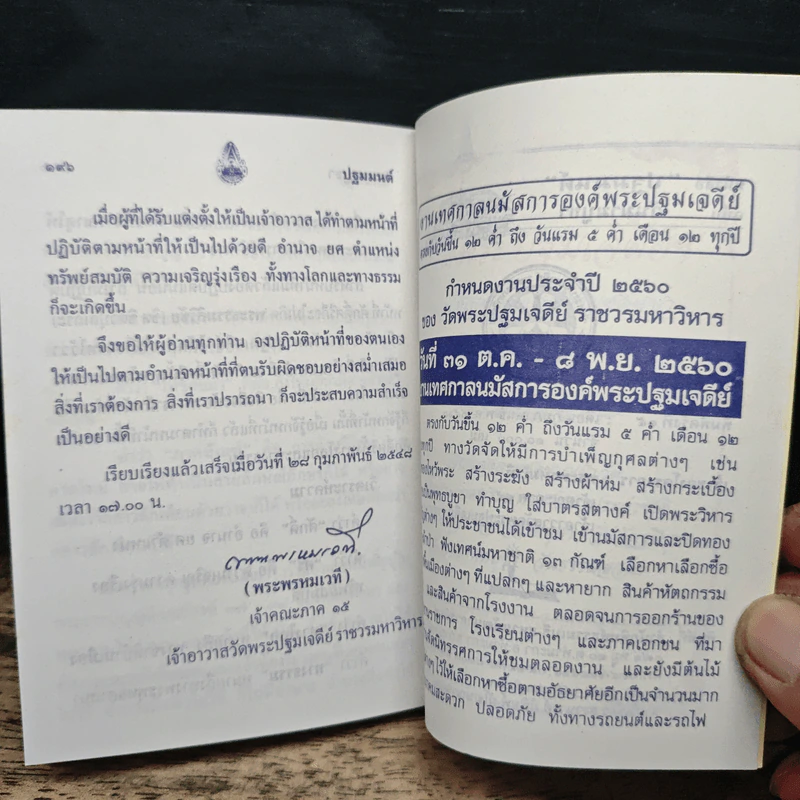 ๑๙๖
ปฐมมนต์
เมื่อผู้ที่ได้รับแต่งตั้งให้เป็นเจ้าอาวาส ได้ทำตามหน้าที่
ปฏิบัติตามหน้าที่ให้เป็นไปด้วยดี อำนาจ ยศ ตำแหน่ง
ทรัพย์สมบัติ ความเจริญรุ่งเรือง ทั้งทางโลกและทางธรรม
ก็จะเกิดขึ้น
จึงขอให้ผู้อ่านทุกท่าน จงปฏิบัติหน้าที่ของตนเอง
ให้เป็นไปตามอำนาจหน้าที่ที่ตนรับผิดชอบอย่างสม่ำเสมอ
สิ่งที่เราต้องการ สิ่งที่เราปรารถนา ก็จะประสบความสำเร็จ
เป็นอย่างดี
เรียบเรียงแล้วเสร็จเมื่อวันที่ ๒๘ กุมภาพันธ์ ๒๕๔๘
เวลา ๑๗.๐๐ น.
(พระพรหมเวที)
เจ้าคณะภาค ๑๕
เจ้าอาวาสวัดพระปฐมเจดีย์ ราชวรมหาวิหาร
งานเทศกาลนมัสการองค์พระปฐมเจดีย์
ตรงกับวันขึ้น ๑๒ ค่ำ ถึง วันแรม ๕ ค่ำ เดือน ๑๒ ทุกปี
กำหนดงานประจำปี ๒๕๖๐
ของ วัดพระปฐมเจดีย์ ราชวรมหาวิหาร
วันที่ ๓๑ ต.ค. - ๘ พ.ย. ๒๕๖๐
งานเทศกาลนมัสการองค์พระปฐมเจดีย์
ตรงกับวันขึ้น ๑๒ ค่ำ ถึงวันแรม ๕ ค่ำ เดือน ๑๒
ทุกปี ทางวัดจัดให้มีการบำเพ็ญกุศลต่างๆ เช่น
สร้างระฆัง สร้างผ้าห่ม สร้างกระเบื้อง
พุทธบูชา ทำบุญ ใส่บาตรสตางค์ เปิดพระวิหาร
ต่างๆ ให้ประชาชนได้เข้าชม เข้านมัสการและปิดทอง
ฟังเทศน์มหาชาติ ๑๓ กัณฑ์ เลือกหาเลือกซื้อ
ต่างๆ ที่แปลกๆ และหายาก สินค้าหัตถกรรม
และสินค้าจากโรงงาน ตลอดจนการออกร้านของ
ราชการ โรงเรียนต่างๆ และภาคเอกชน ที่มา
นิทรรศการให้ชมตลอดงาน และยังมีต้นไม้
ไว้ให้เลือกหาซื้อตามอัธยาศัยอีกเป็นจำนวนมาก
สะดวก ปลอดภัย ทั้งทางรถยนต์และรถไฟ